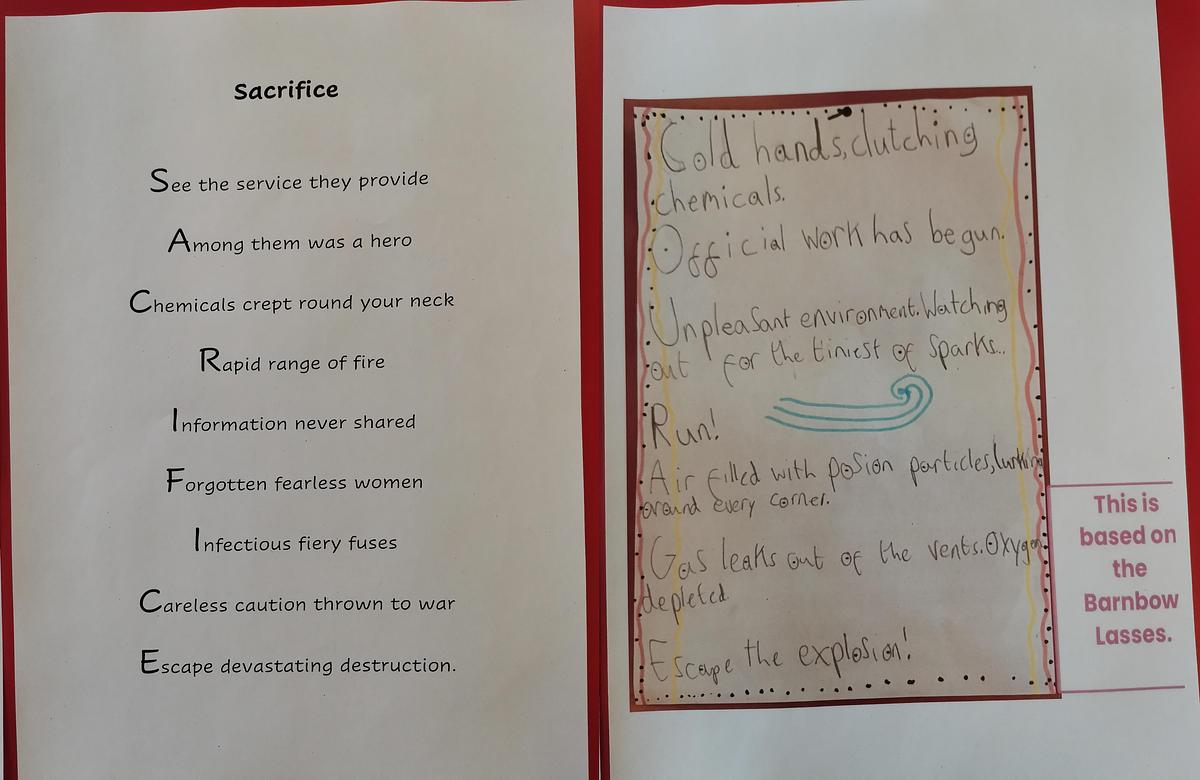 Sacrifice
See the service they provide
Among them was a hero
Chemicals crept round your neck
Rapid range of fire
Information never shared
Forgotten fearless women
Infectious fiery fuses
Careless caution thrown to war
Escape devastating destruction.
Cold hands, clutching
chemicals.
Official work has begun.
Unpleasant environment. Watching
out for the tiniest of sparks...
Run!
Air filled with posion particles, lurking
around every corner.
Gas leaks out of the vents. Oxygen
depleted
Escape the explosion!
This is
based on
the
Barnbow
Lasses.